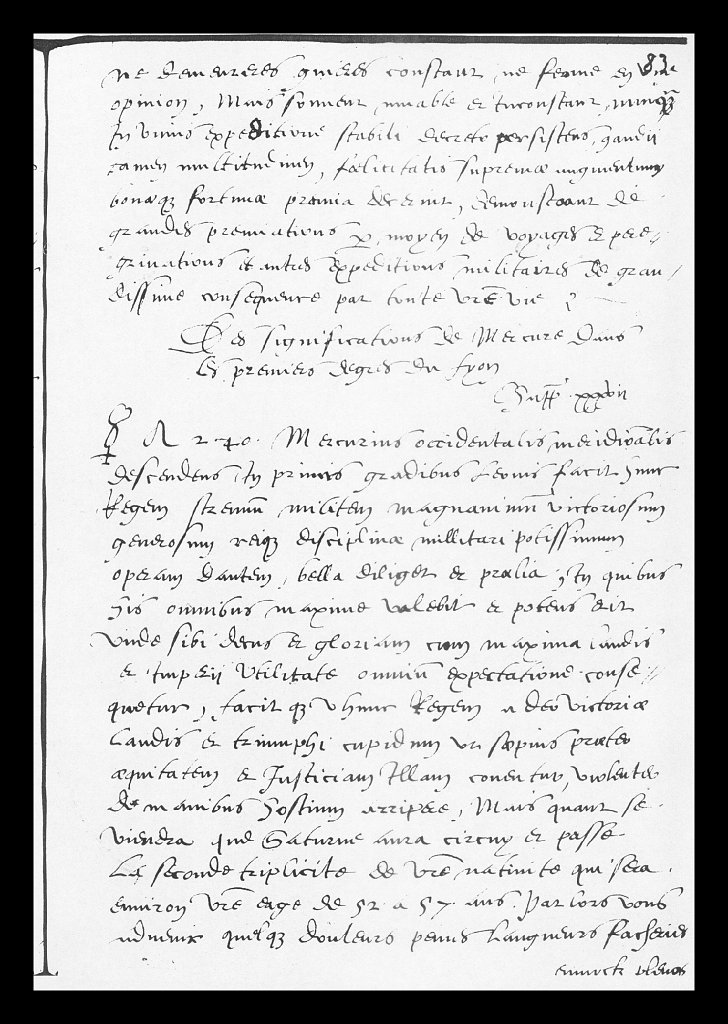 83
ne demeureres guieres constant ne ferme en une
opinion, Mais souvent muable et Inconstant, nunq̃
In unius expeditione stabili decreto persistens, gaudij
tamen multitudinem, fœlicitatis supremæ augmentum
bonæq; fortunæ præmia decernit, demonstrant de
grandes premiations p̱ moyen de voyages et pere-
grinations et autres expeditions militaires de gran-
dissime consequence par toute vr̃e vie
Des significations de Mercure dans
les premiers degres du Lyon
Supp̃. xxxvii
A 240. Mercurius occidentalis, meridiõalis
descendens In primis gradibus Leonis facit hunc
Regem strenuũ militem magnanimum victoriosum
generosum reiq; disciplinæ millitari potissimum
operam dantem, bella diliget et prælia, In quibus
his omnibus maxime valebit et potens erit
unde sibi decus et gloriam cum maxima laudis
et Imperij Utilitate omniũ expectatione conse-
quetur, facit q; hunc Regem a deo victoriæ
laudis et triumphi cupidum ut sæpius præter
æquitatem et Justiciam Illam conentur, violenter
de manibus hostium arripere, Mais quant se
viendra que Saturne aura circuy et passe
La seconde triplicite de vr̃e nativite qui sera
environ vr̃e eage de 52 a 57 ans. Par lors vous
advenir quelq; douleurs penes langueurs facheries